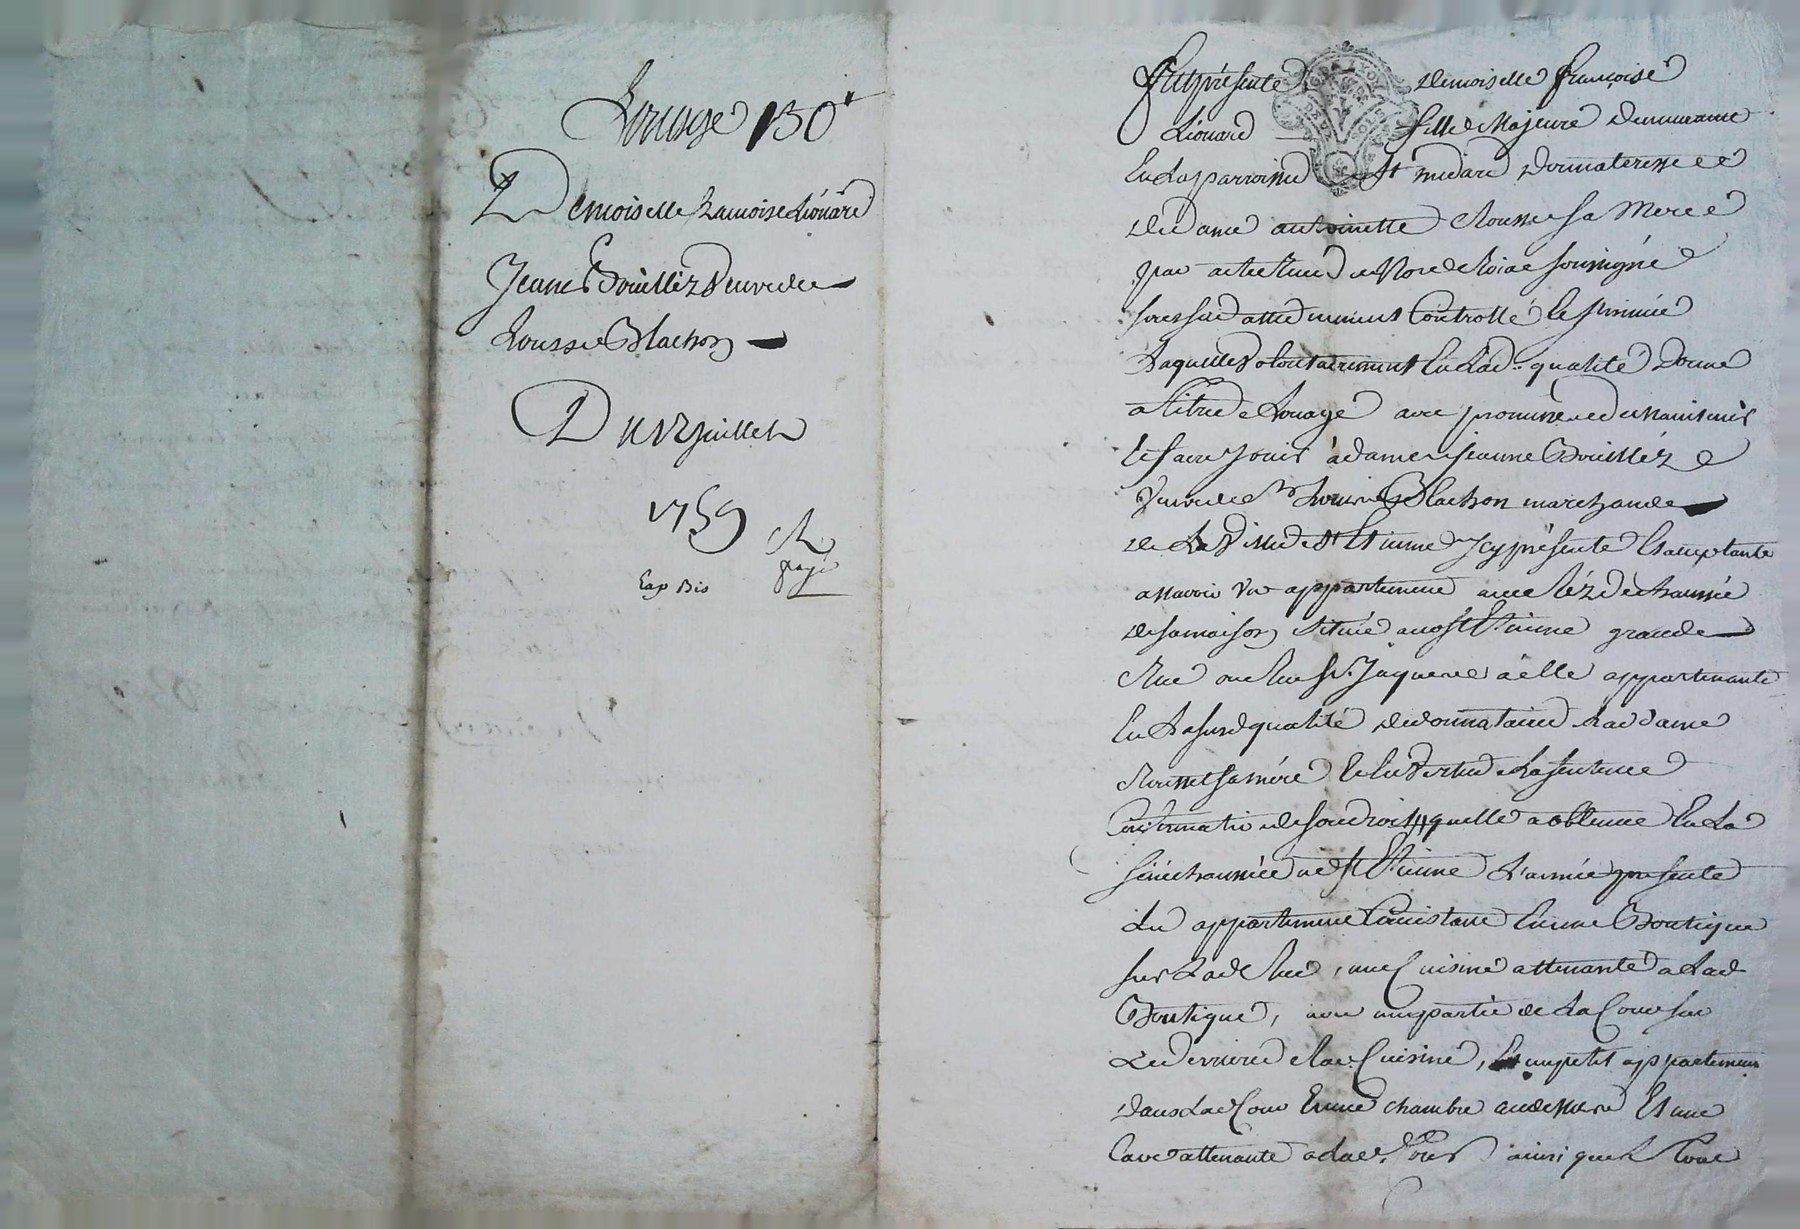 Louage 150#
Demoiselle Francoise Liónard
Jeanne Bouillez Veuve de
Rousse Blachon
Du 12 juillet
1759
R
payé
Exp Bis
Fut présente Demoiselle françoise
Liónard fille Majeure demeurante
En La parroisse St medard Donnateresse
de dame antoinette Rousse sa Mere
par acte Receu de No.re Roial soussigné
sur ce duement Controllé et Insinüé
Laquelle Volontairement En lad: qualité Donne
a titre de Louage avec promesse de maintenir
et faire Jouir à dame jeanne Bouilléz
Veuve de Sr Blachon marchande
de La Ville de St Etienne Icy présente Et acceptante
assavoir Un appartement au Réz de chaussée
de sa maison située aud St Etienne grande
Rue ou Rue St. Jaques à elle appartenante
En La susd qualité de donnataire de lad dame
Rousse sa mére Et En Vertu de La sentence
Confirmative de son droit quelle a obtenue En La
sénéchaussée de St Etienne L'année présente
Led appartement Consistant En une Boutique
sur Lad Rue, une Cuisine attenante a Lad
Boutique, avec une partie de La Cour sur
Le derriere de lad Cuisine, Et un petit appartement
dans Lad Cour Et une chambre au dessus Et une
Cave attenante a lad. Cour ainsi que Le tout